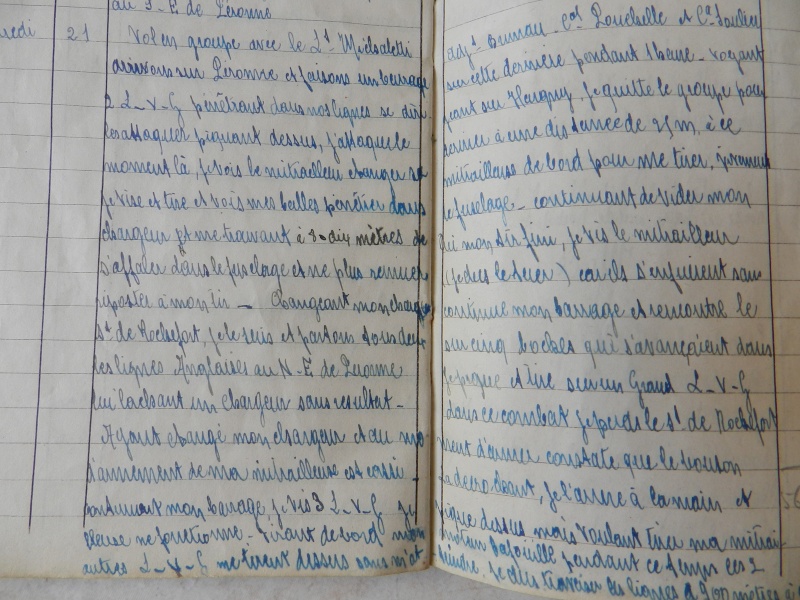 au S-E de Péronne
redi 21 Vol en groupe avec le Lt
arrivons sur Péronne et faisons un barrage
2 L-V-G pénétrant dans nos lignes se
les attaquer piquant dessus, j'attaque le
moment là, je vois le mitrailleur changer
je vise et tire et vois mes balles pénétrer dans
chargeur et me trouvant à 8 ou dix mètres de
s'affaler dans le fuselage et ne plus remuer
riposter à mon tir - Changeant mon chargeur
St de Rochefort, je le suis et partons tous deux
les lignes Anglaises au N-E de Péronne
lui lachant un chargeur sans resultat -
Ayant changé mon chargeur et au mo-
d'armement de ma mitrailleuse est cassé -
continuant mon barrage, je vois 3 L-V-G je
lleuse ne fonctionne - Virant de bord
autres L-V-G me tirent dessus sans m'at
adjt St
sur cette dernière pendant 1 heure - voyant
je quitte le groupe pour
dernier à une distance de 25 m, à ce
mitrailleuse de bord pour me tirer,
le fuselage - continuant de vider mon
mon tir fini, je vis le mitrailleur
(je dus le tuer) car ils s'enfuirent sans
continue mon barrage et rencontre le
sur cinq boches qui s'avançaient dans
je pique et tire sur un Grand L-V-G
dans ce combat je perds le St de Rochefort
ment d'armer constate que le bouton
je l'arme à la main et
pique dessus mais voulant tirer ma mitrai-
moteur bafouille pendant ce temps les 2
teindre. Je dus traverser les lignes à 900 mètres